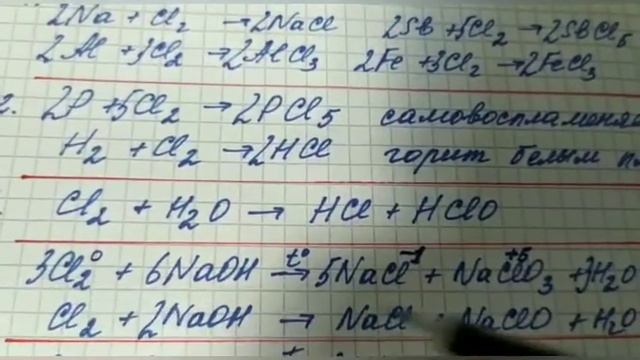 2Na + Cl₂ → 2NaCl 2Sb + 5Cl₂ → 2SbCl₅
2Al + 3Cl₂ → 2AlCl₃ 2Fe + 3Cl₂ → 2FeCl₃
2. 2P + 5Cl₂ → 2PCl₅
H₂ + Cl₂ → 2HCl горит белым
Cl₂ + H₂O → HCl + HClO
3Cl₂⁰ + 6NaOH t° → 5NaCl⁻¹ + NaCl⁺⁵O₃ + 3H₂O
Cl₂ + 2NaOH → NaCl + NaClO + H₂O